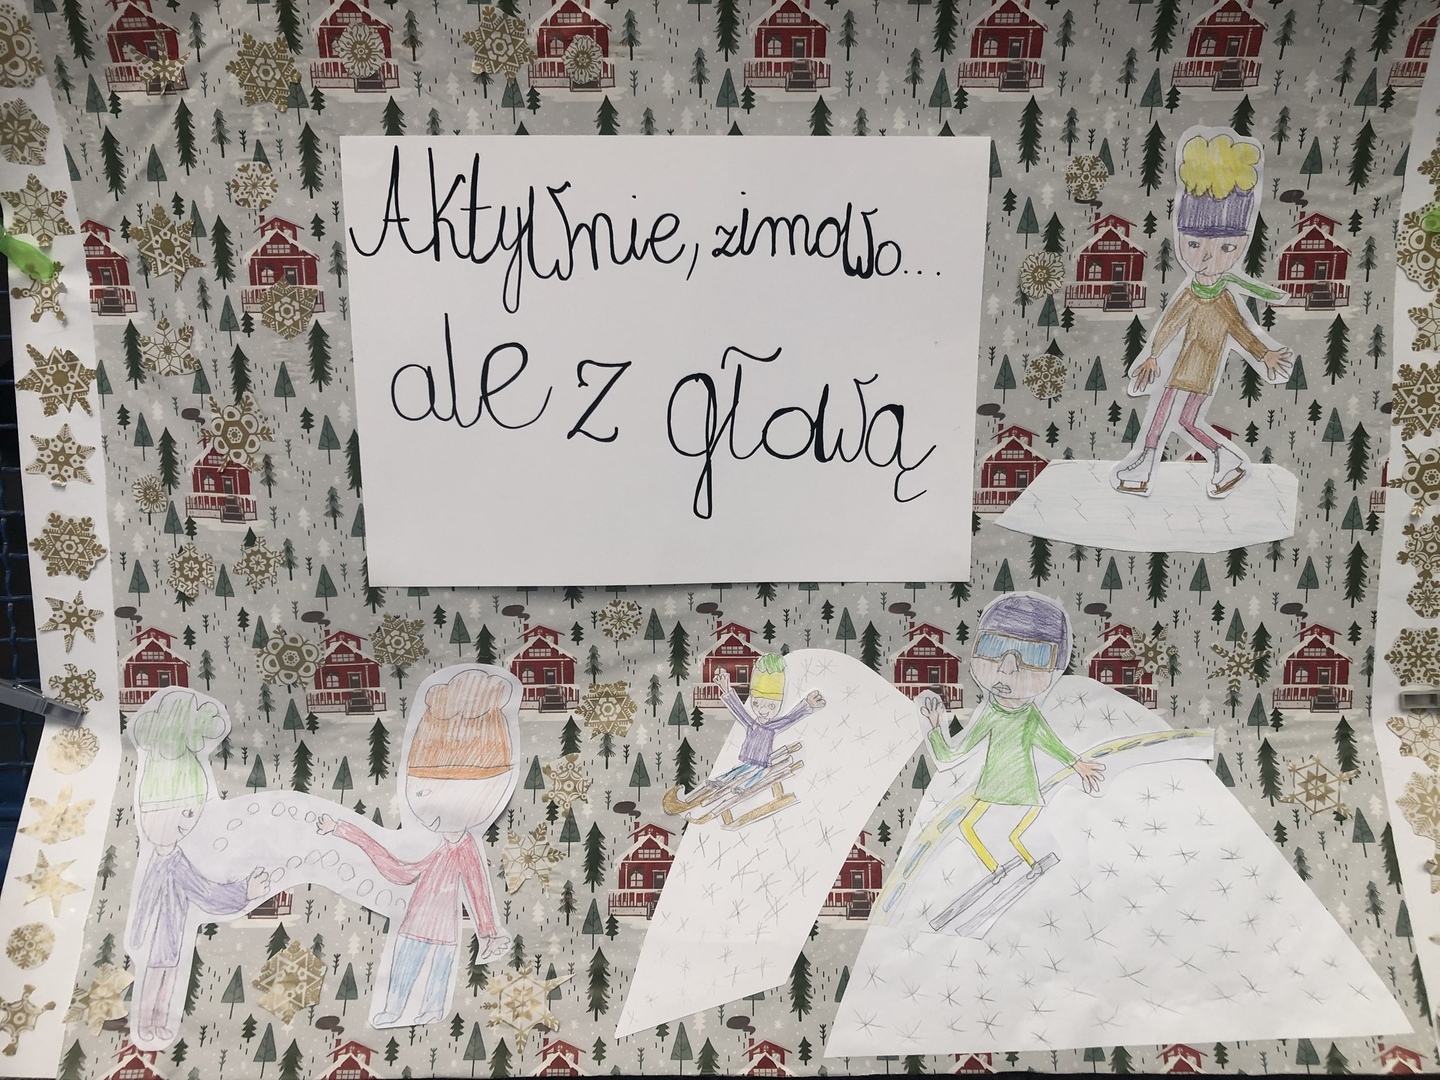 Aktywnie, zimowo...
ale z głową